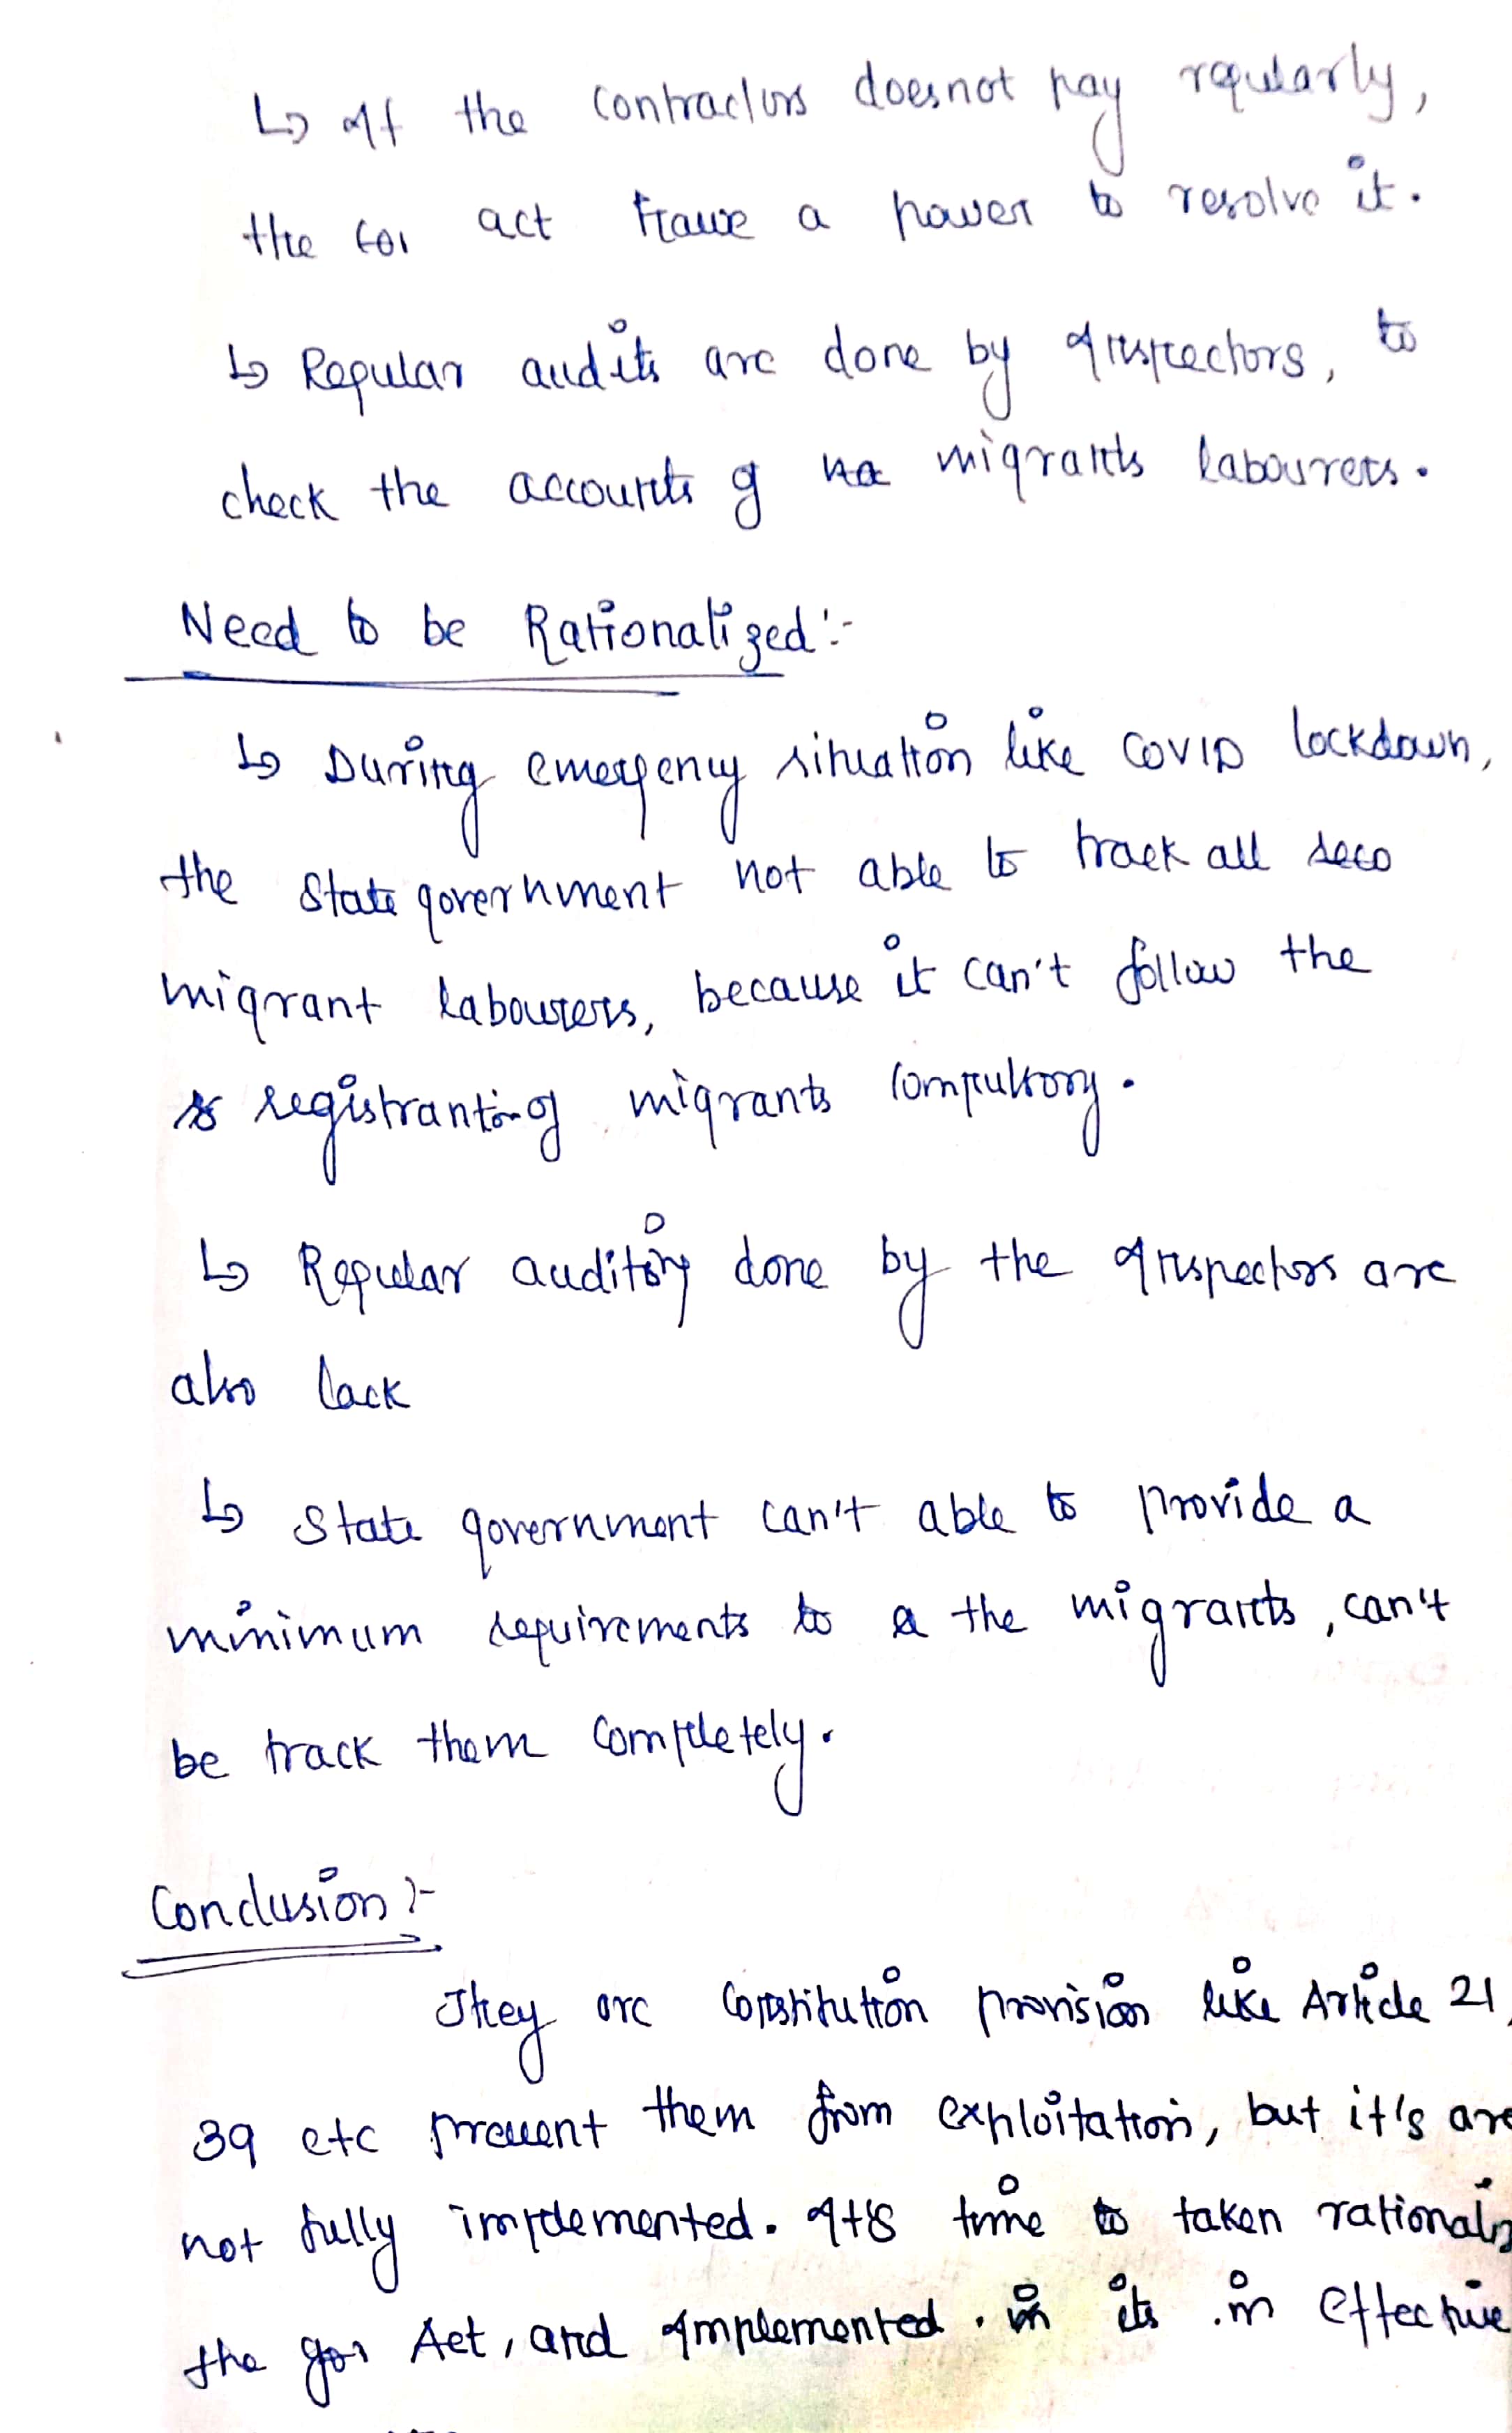 ↳ If the contractors doesnot pay regularly,
the act have a power to resolve it.
↳ Regular audits are done by Inspectors, to
check the accounts of migrants labourers.
Need to be Rationalized :-
↳ During emergency situation like COVID lockdown,
the State government not able to track all
migrant labourers, because it can't follow the
registrantion of migrants compulsory.
↳ Regular auditing done by the Inspectors are
also lack
↳ State government can't able to provide a
minimum requirements to the migrants, can't
be track them completely.
Conclusion :-
They are Constitution provision like Article 21,
39 etc prevent them from exploitation, but it's are
not fully implemented. It's time to taken
the Act, and Implemented. its in effective